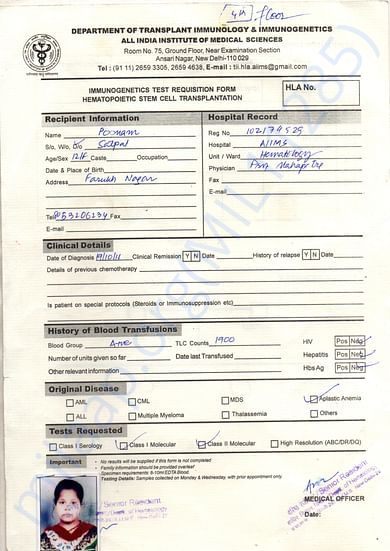 4th floor
DEPARTMENT OF TRANSPLANT IMMUNOLOGY & IMMUNOGENETICS
ALL INDIA INSTITUTE OF MEDICAL SCIENCES
Room No. 75, Ground Floor, Near Examination Section
Ansari Nagar, New Delhi-110 029
Tel : (91 11) 2659 3305, 2659 4638, E-mail : tii.hla.aiims@gmail.com
IMMUNOGENETICS TEST REQUISITION FORM
HEMATOPOIETIC STEM CELL TRANSPLANTATION
HLA No.
Recipient Information
Name Poonam
S/o, W/o, D/o Satpal
Age/Sex 12/F Caste Occupation
Date & Place of Birth
Address Farukh Nagar
Tel Fax
E-mail
Hospital Record
Reg No 102179525
Hospital AIIMS
Unit / Ward Hematology
Physician
Fax
E-mail
Clinical Details
Date of Diagnosis 19/10/11 Clinical Remission Y N Date History of relapse Y N Date
Details of previous chemotherapy
Is patient on special protocols (Steroids or Immunosuppression etc)
History of Blood Transfusions
Blood Group A+ve TLC Counts 1900 HIV Pos Neg
Number of units given so far Date last Transfused Hepatitis Pos Neg
Other relevant information Hbs Ag Pos Neg
Original Disease
AML CML MDS Aplastic Anemia
ALL Multiple Myeloma Thalassemia Others
Tests Requested
Class I Serology Class I Molecular Class II Molecular High Resolution (ABC/DR/DQ)
Important
• No results will be supplied if this form is not completed
• Family information should be provided overleaf
• Specimen requirements: 8-10ml EDTA Blood.
Testing Details: Samples collected on Monday & Wednesday, with prior appointment only.
Senior Resident
Dept. of Hematology
MEDICAL OFFICER
Date:
Senior Resident
Dept. of Hematology